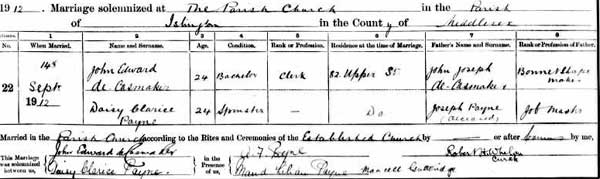 1912. Marriage solemnized at The Parish Church in the Parish
of Islington in the County of Middlesex
Columns:— 1 2 3 4 5 6 7 8
No. When Married. Name and Surname. Age. Condition. Rank or Profession. Residence at the time of Marriage. Father's Name and Surname. Rank or Profession of Father.
22 14th Sept 1912 John Edward de Casmaker 24 Bachelor Clerk 82 Upper St John Joseph de Casmaker Bonnet Shape maker
Daisy Clarice Payne 24 Spinster — Do Joseph Payne (deceased) Job Master
Married in the Parish Church according to the Rites and Ceremonies of the Established Church by — or after Banns by me,
This Marriage was solemnized between us, John Edward de Casmaker in the Presence of us, A F Payne Robert H. Whelan
Daisy Clarice Payne. Maud Lilian Payne Curate